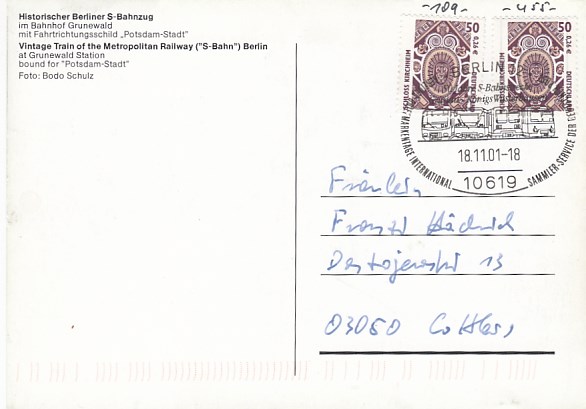 Historischer Berliner S-Bahnzug
im Bahnhof Grunewald
mit Fahrtrichtungsschild „Potsdam-Stadt"
Vintage Train of the Metropolitan Railway ("S-Bahn") Berlin
at Grunewald Station
bound for "Potsdam-Stadt"
Foto: Bodo Schulz
-109- -455-
50 0,26 € DEUTSCHE SCHLOSS KIRCHHEIM
50 0,26 € DEUTSCHE
BERLIN
S-Bahn
Königs Wusterhausen
MARKENTAGE INTERNATIONAL
SAMMLER-SERVICE DER
18.11.01-18
10619
Fräulein
Dostojewski 13
03050 Cottbus